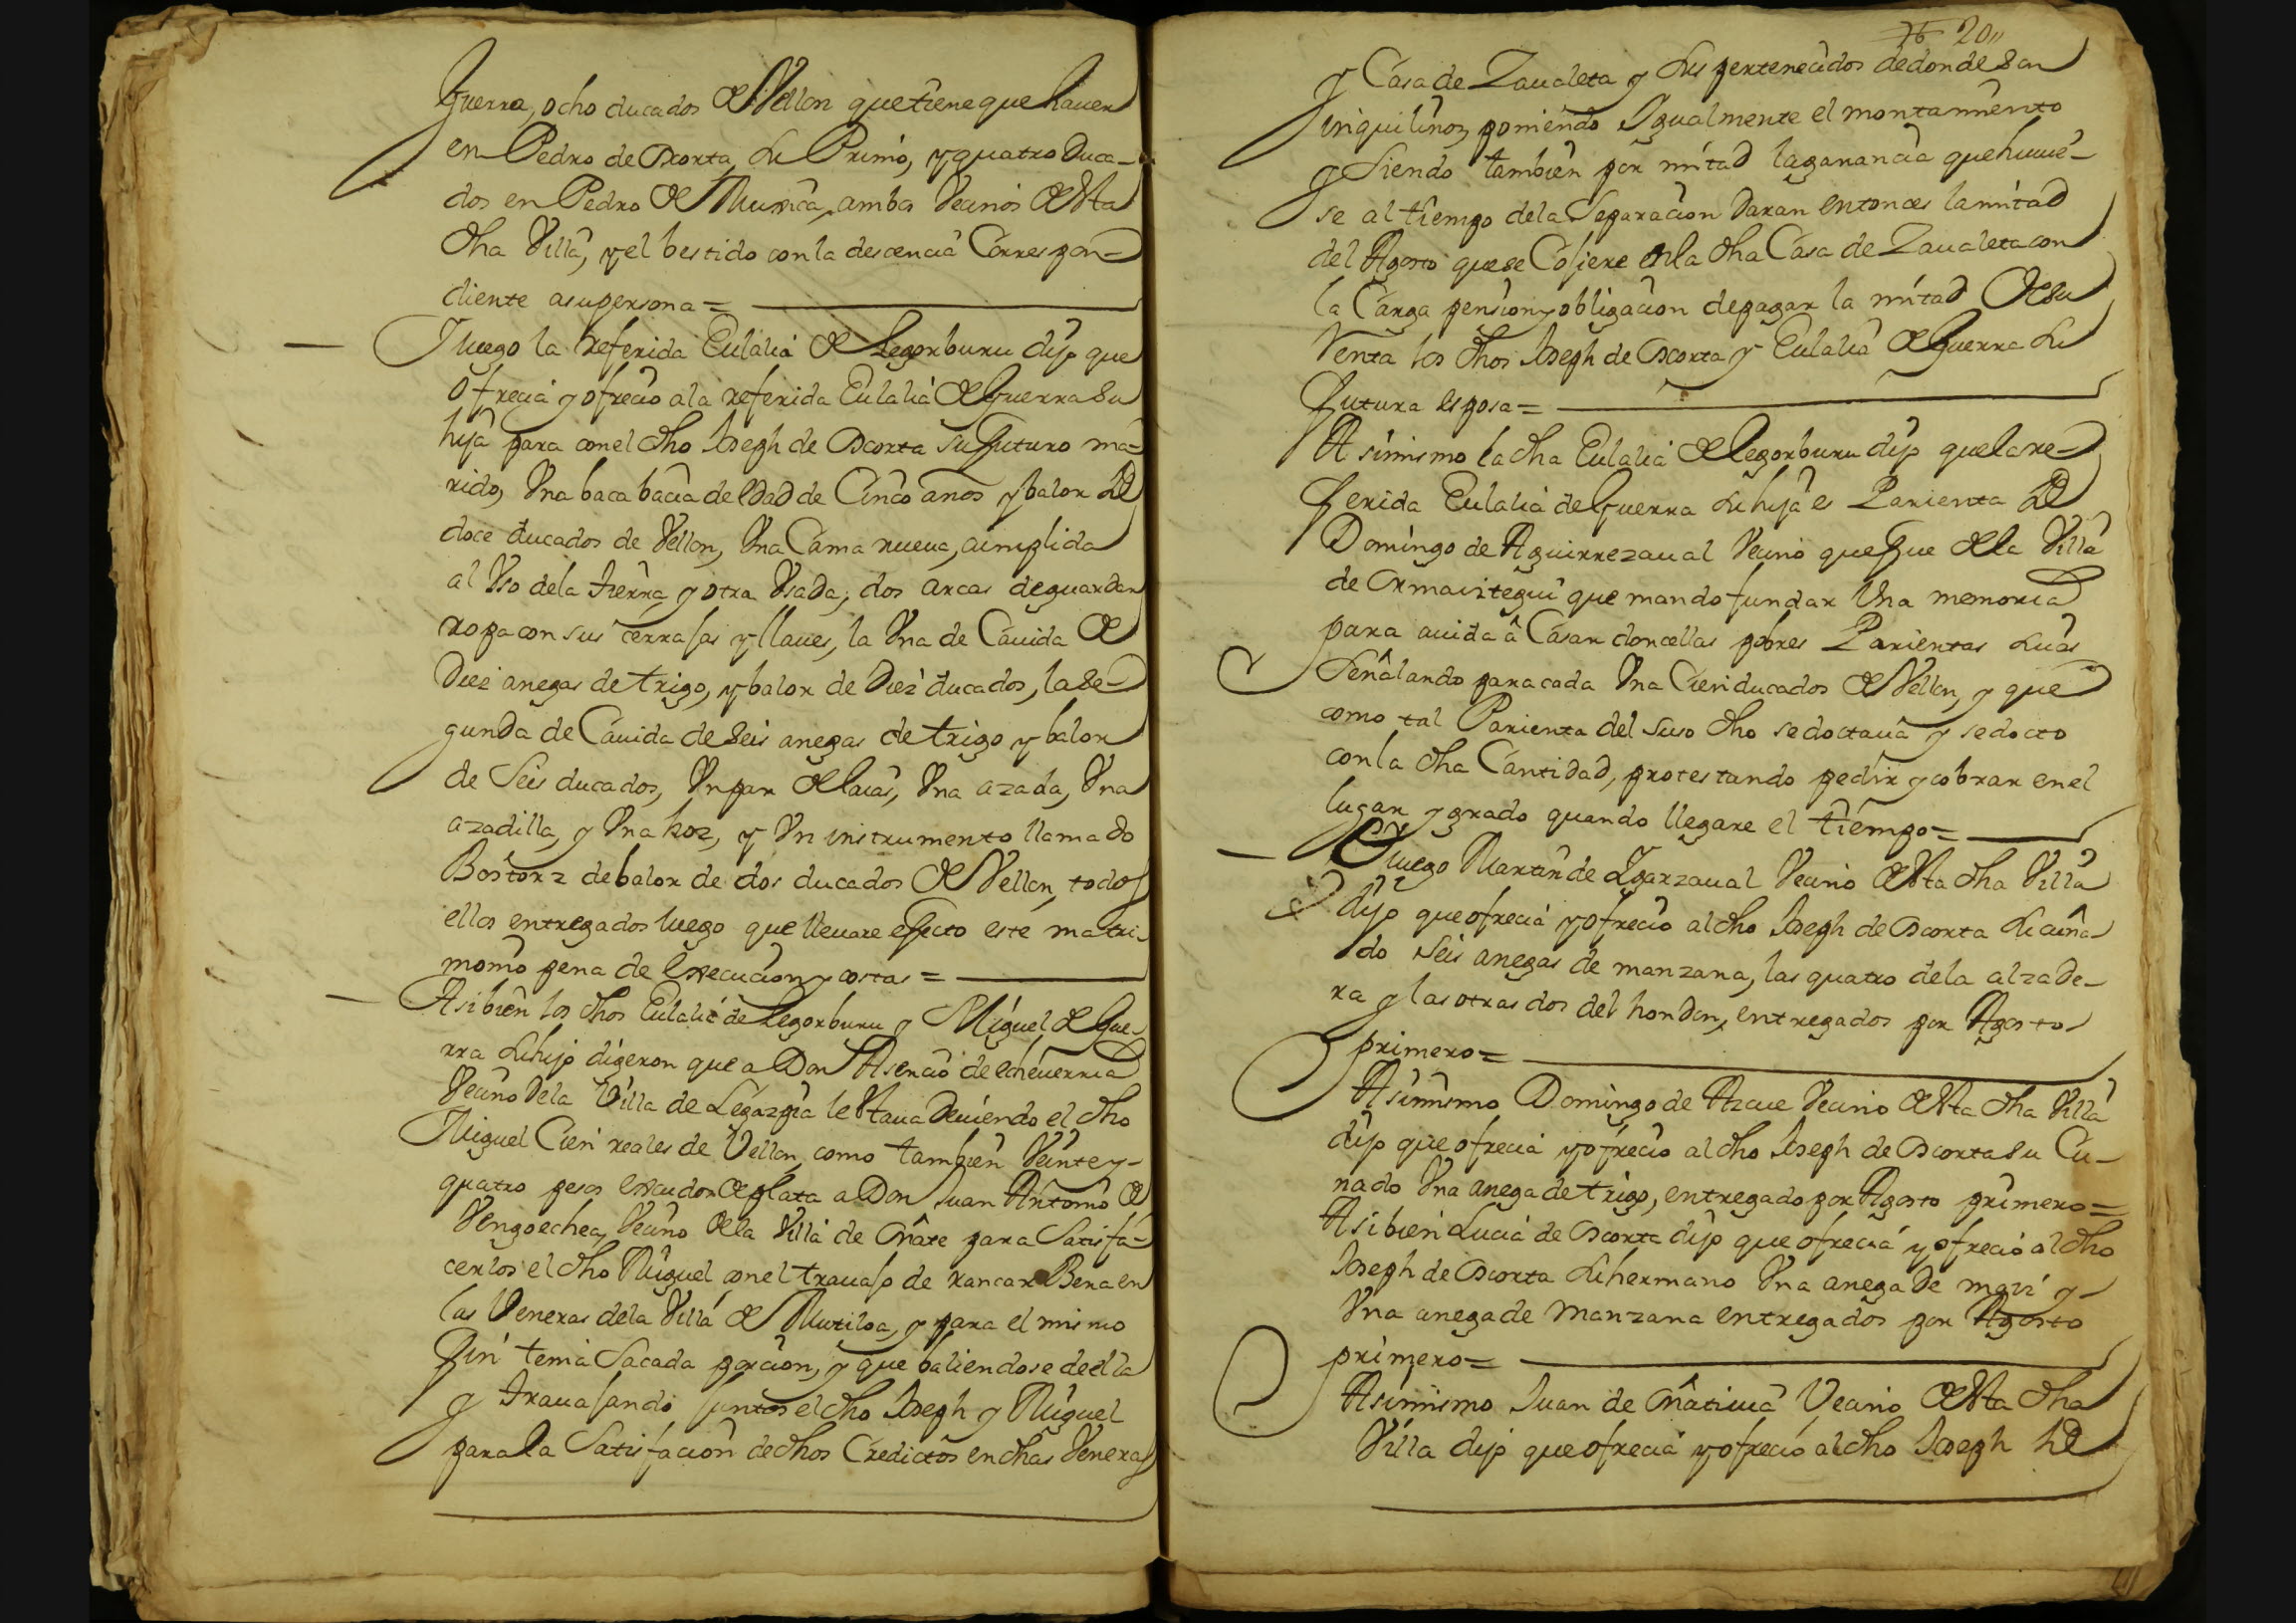 Guerra, ocho ducados de Vellon que tiene que hauer
en Pedro de Ocorta, su Primo, y quatro Duca-
dos en Pedro de Muxica, ambos Vecinos de esta
dha Villa, y el bestido con la descencia Correspon-
diente a su persona =
Y luego la referida Eulalia de Legorburu dijo que
Ofrecia y ofrecio a la referida Eulalia de Guerra su
hija para con el dho Joseph de Ocorta su futuro ma-
rido, Vna baca bacia de hedad de Cinco anos y balor de
doce ducados de Vellon, Vna Cama nueua, cumplida
al Vso de la tierra, y otra Vsada, dos arcas de guardar
ropa con sus cerrajas y llaues, la Vna de Cauida de
Diez anegas de trigo, y balor de Diez ducados, la se-
gunda de Cauida de seis anegas de trigo y balor
de Seis ducados, Vn par de laias, Vna azada, Vna
azadilla, y Vna hoz, y Vn instrumento llamado
Bostorz de balor de dos ducados de Vellon, todos
ellos entregados luego que lleuare efecto este matri-
monio pena de execucion y costas =
Asi bien los dhos Eulalia de Legorburu y Miguel de Gue-
rra su hijo digeron que a Don Asencio de echeuerria
Vecino de la Villa de Legazpia le estaua Deuiendo el dho
Miguel Cien reales de Vellon, como tambien Veinte y
quatro pesos escudos de plata a Don Juan Antonio de
Vengoechea, Vecino de la Villa de Oñate para Satisfa-
cerlos el dho Miguel con el trauajo de rancar Bena en
las Veneras de la Villa de Mutiloa, y para el mismo
fin tenia Sacada porcion, y que baliendose de ella
y trauajando juntos el dho Joseph y Miguel
para la Satisfacion de dhos Credictos en dhas Veneras
20
y Casa de Zaualeta y sus pertenecidos de donde son
inquilinos, poniendo Igualmente el montamiento
y siendo tambien por mitad la ganancia que huuie-
se al tiempo de la Separacion daran entonces la mitad
del Agosto que se Cojiere en la dha Casa de Zaualeta con
la Carga pension y obligacion de pagar la mitad de su
Renta los dhos Joseph de Ocorta y Eulalia de Guerra su
futura esposa =
Asimismo la dha Eulalia de Legorburu dijo que la re-
ferida Eulalia de Guerra su hija es Parienta de
Domingo de Aguirrezaual Vecino que fue de la Villa
de Ormaiztegui que mando fundar Vna memoria
para auida â Casar doncellas pobres Parientas suias
Señalando para cada Vna Cien ducados de Vellon, y que
como tal Parienta del suso dho se doctaua y se docto
con la dha Cantidad, protestando pedir y cobrar en el
lugar y grado quando llegare el tiempo =
Y luego Martin de Igarzaual Vecino de esta dha Villa
dijo que ofrecia y ofrecio al dho Joseph de Ocorta su cuña-
do seis anegas de manzana, las quatro de la alzade-
ra y las otras dos del hondon, entregados por Agosto
primero =
Asimismo Domingo de Azcue Vecino de esta dha Villa
dijo que ofrecia y ofrecio al dho Joseph de Ocorta su Cu-
nado Vna anega de trigo, entregado por Agosto primero =
Asi bien Lucia de Ocorta dijo que ofrecia y ofrecio al dho
Joseph de Ocorta su hermano Vna anega de maiz y
Vna anega de manzana entregados por Agosto
primero =
Asimismo Juan de Oñatiuia Vecino de esta dha
Villa dijo que ofrecia y ofrecio al dho Joseph de